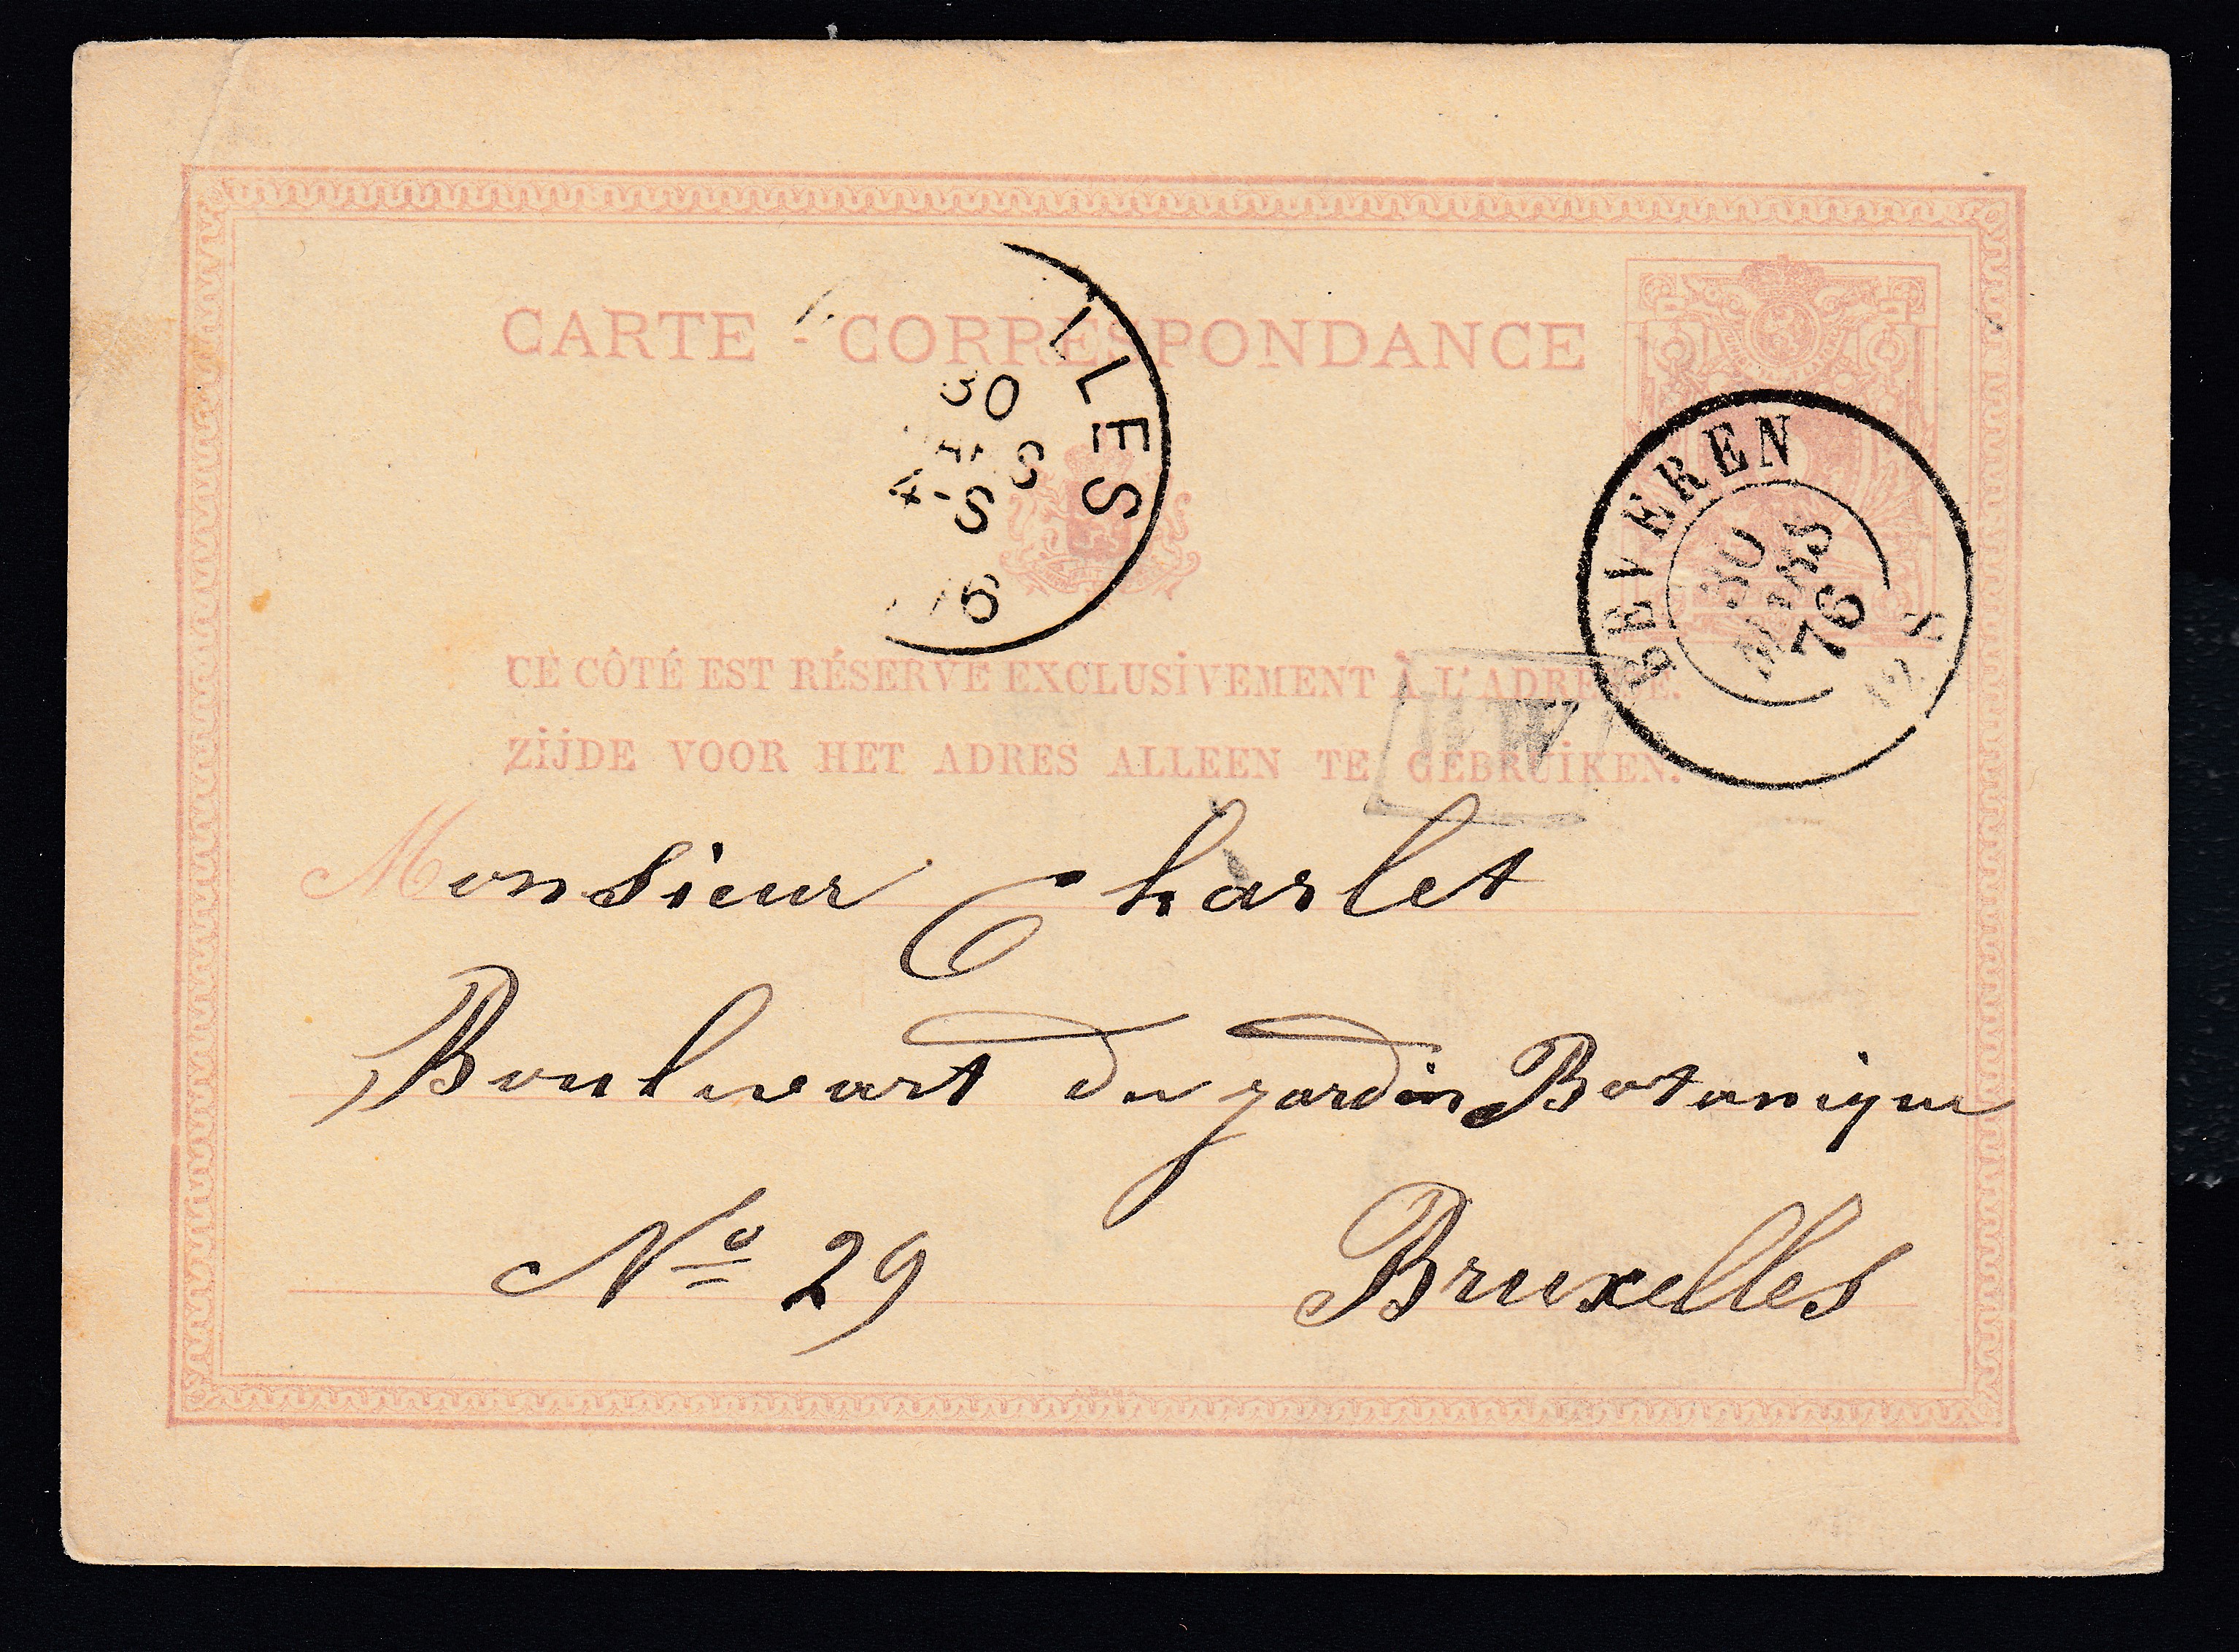 CARTE - CORRESPONDANCE
LLES
30
S
4-S
76
BEVEREN
30
MARS
76
CE CÔTÉ EST RÉSERVÉ EXCLUSIVEMENT À L'ADRESSE.
ZIJDE VOOR HET ADRES ALLEEN TE GEBRUIKEN.
Monsieur Charlet
Boulevart du jardin Botanique
Nº 29 Bruxelles